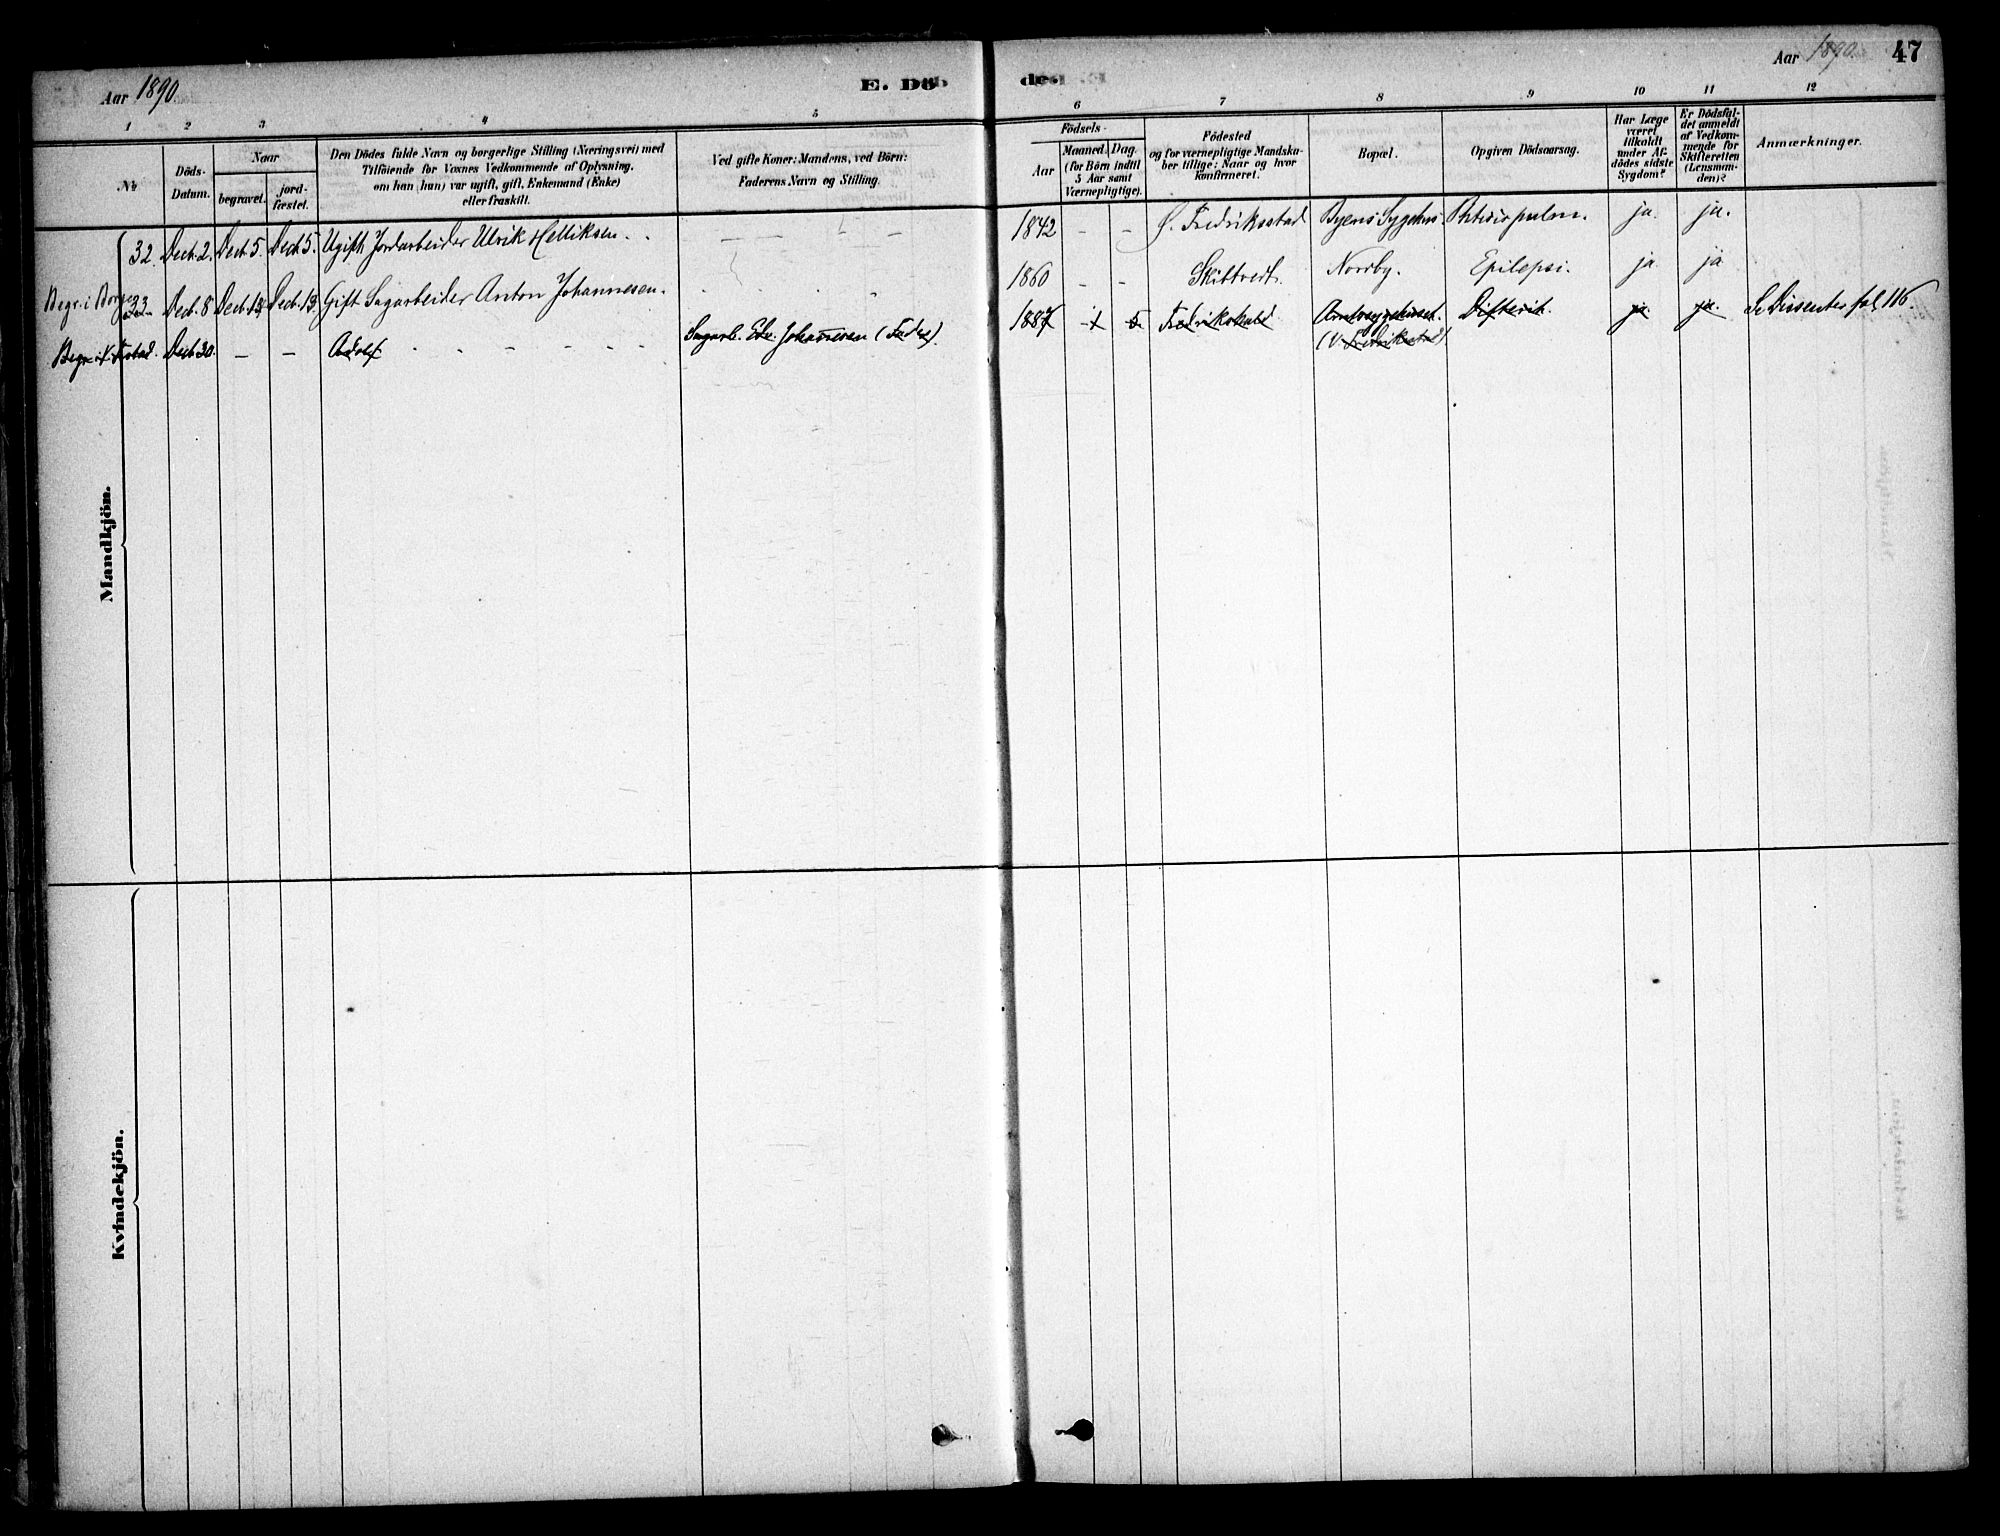 Aar 1890.
E. Dö
de.
Aar 1890.
47
1 2 3 4 5 6 7 8 9 10 11 12
No
Döds-
Datum.
Naar
begravet.
jord-
fæstet.
Den Dödes fulde Navn og borgerlige Stilling (Næringsvei) med
Tilföiende for Voxnes Vedkommende af Oplysning,
om han (hun) var ugift, gift, Enkemand (Enke)
eller fraskilt.
Ved gifte Koner: Mandens, ved Börn:
Faderens Navn og Stilling.
Födsels-
Aar
Maaned. Dag.
(for Börn indtil
5 Aar samt
Værnepligtige).
Födested
og for værnepligtige Mandska-
ber tillige: Naar og hvor
konfirmeret.
Bopæl.
Opgiven Dödsaarsag.
Har Læge
været
tilkaldt
under Af-
dödes sidste
Sygdom?
Er Dödsfal-
det anmeldt
af Vedkom-
mende for
Skifteretten
(Lensman-
den)?
Anmærkninger.
Mandkjön.
32. Decb. 2. Decb. 5. Decb. 5. Ugift Jordarbeider Ulrik Helliksen. - - - 1842 - - G. Fredriksstad Byens Sygehus. Phtisis pulm. ja. ja.
Begr. i Borge 33. Decb. 8 Decb. 13. Decb. 13. Gift Sagarbeider Anton Johannesen. 1860 - - Skibtvedt. Norrby. Epilepsi. ja ja
Begr. i Decb. 30. - - Adolf - - - - - - Sagarb. Johannesen (Fader). 1887 1 5 Fredrikshald Amtssygehuset. Difterit. ja. ja. Se Dissenter fol. 116.
(V. Fredrikstad)
Kvindekjön.